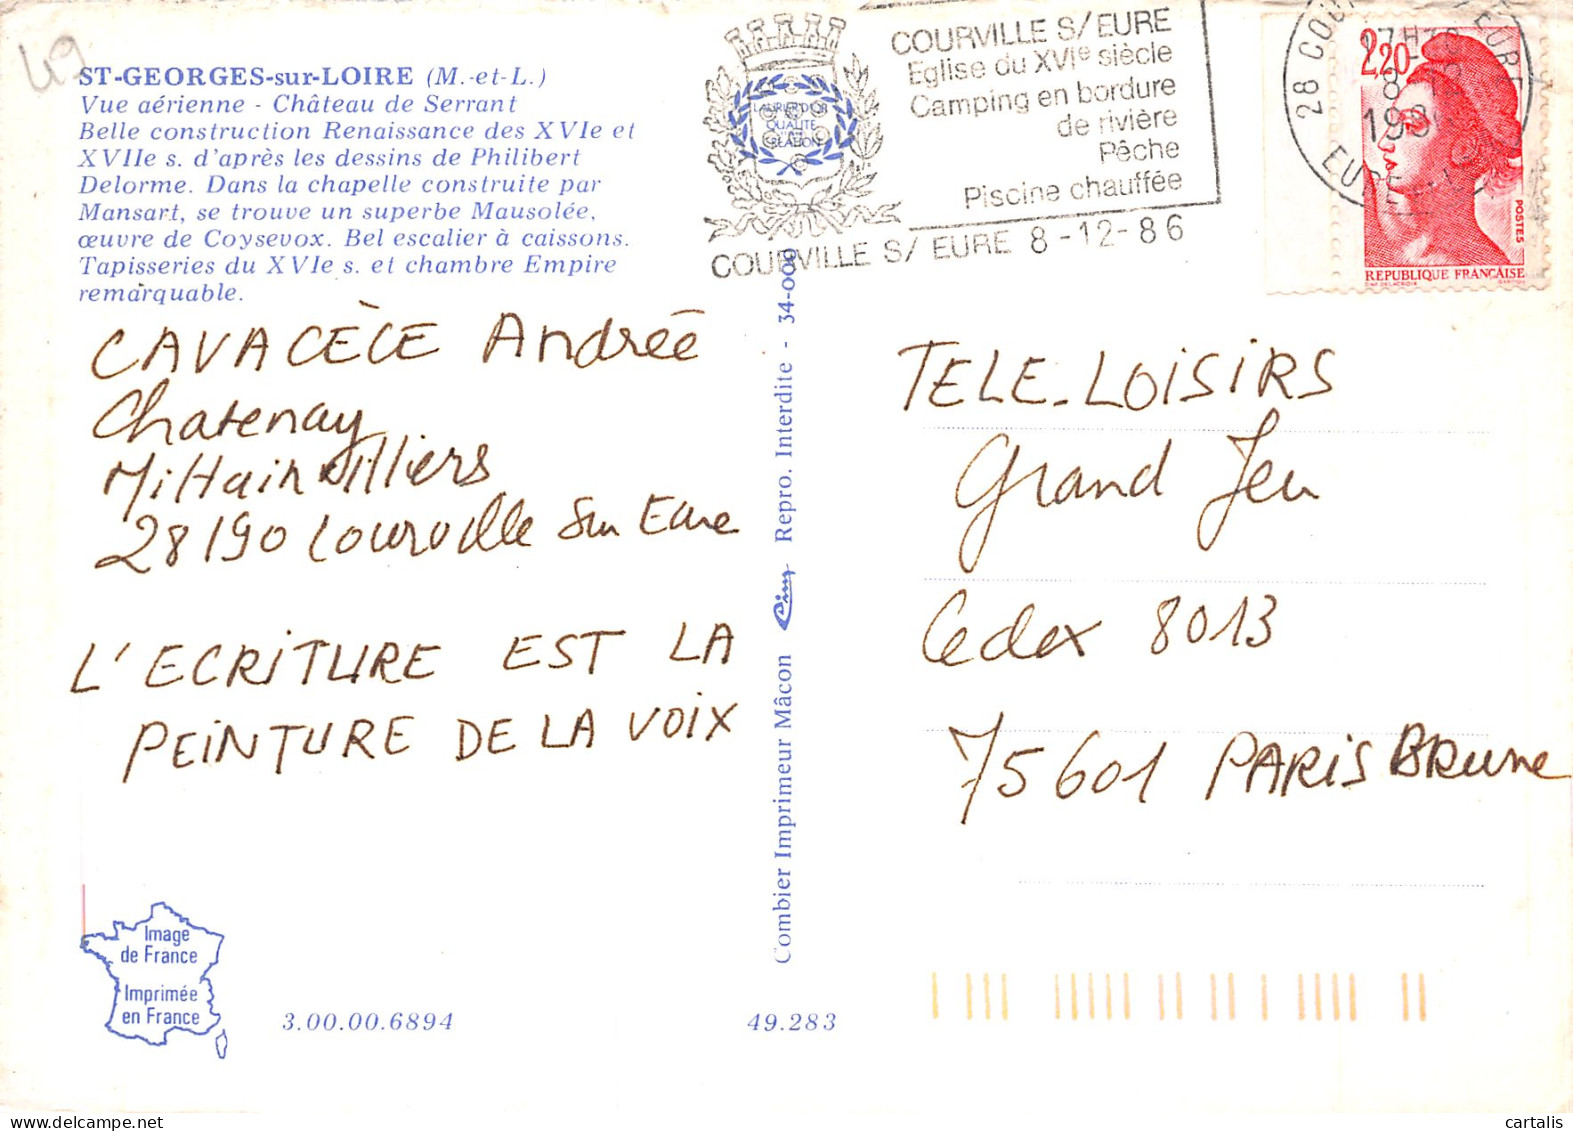 49
ST-GEORGES-sur-LOIRE (M.-et-L.)
Vue aérienne - Château de Serrant
Belle construction Renaissance des XVIe et
XVIIe s. d'après les dessins de Philibert
Delorme. Dans la chapelle construite par
Mansart, se trouve un superbe Mausolée,
œuvre de Coysevox. Bel escalier à caissons.
Tapisseries du XVIe s. et chambre Empire
remarquable.
CAVACÈCE Andrée
Chatenay
Mittainvilliers
28190 Courville Sur Eure
L'ECRITURE EST LA
PEINTURE DE LA VOIX
Image
de France
Imprimée
en France
3.00.00.6894
49.283
Combier Imprimeur Mâcon Cim Repro. Interdite - 34-000
LAURIER D'OR
QUALITE
COURVILLE S/ EURE
Eglise du XVIe siècle
Camping en bordure
de rivière
Pêche
Piscine chauffée
COURVILLE S/ EURE 8-12-86
28 COU EURE
17H
8-12
198
EURE
2,20
POSTES
REPUBLIQUE FRANÇAISE
TELE-LOISIRS
Grand Jeu
Cedex 8013
75601 PARIS BRUNE
cartalis